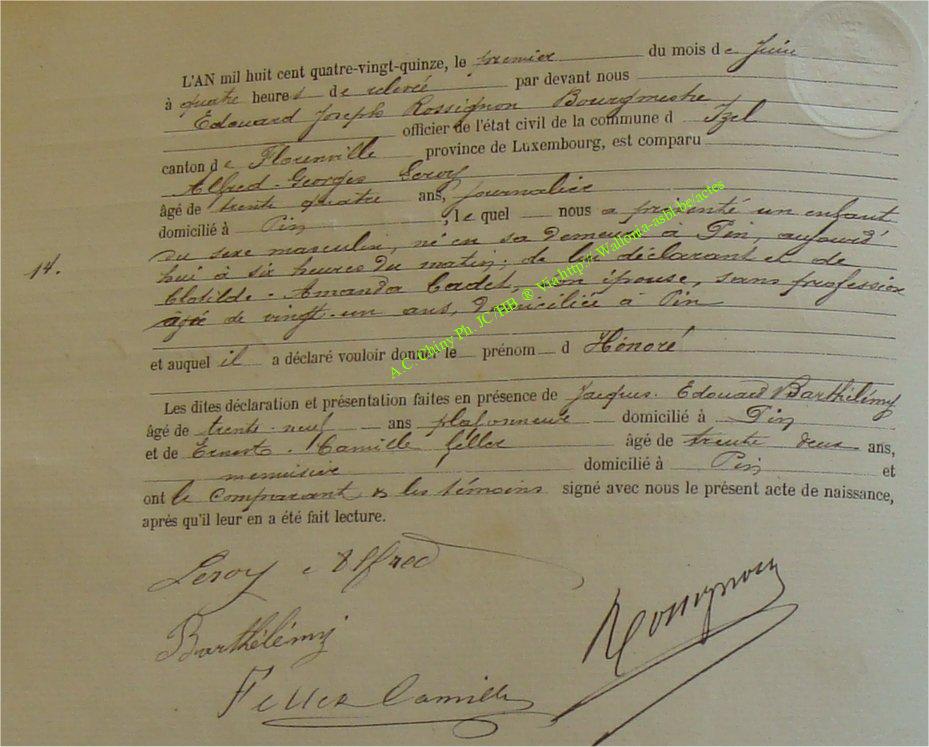 L'AN mil huit cent quatre-vingt-quinze, le premier du mois de Juin
à quatre heures de relevée par devant nous
Edouard Joseph Rossignon Bourgmestre
officier de l'état civil de la commune d Izel
canton de Florenville province de Luxembourg, est comparu
Alfred-Georges Leroy
âgé de trente quatre ans, journalier
domicilié à Pin, lequel nous a présenté un enfant
du sexe masculin, né en sa demeure à Pin, aujourd'
14. hui à six heures du matin; de lui déclarant et de
Clotilde-Amanda Cadet, son épouse, sans profession
âgée de vingt-un ans, domiciliée à Pin
et auquel il a déclaré vouloir donner le prénom d Honoré
Les dites déclaration et présentation faites en présence de Jacques Edouard Barthélémy
âgé de trente-neuf ans plafonneur domicilié à Pin
et de Ernest-Camille Feller âgé de trente deux ans,
menuisier domicilié à Pin et
ont le Comparant & les témoins signé avec nous le présent acte de naissance,
après qu'il leur en a été fait lecture.
Leroy Alfred
Barthélémy
Rossignon
Feller Camille
A.C. Chiny Ph. JC /HB ® Via http://Wallonia-asbl-be/actes